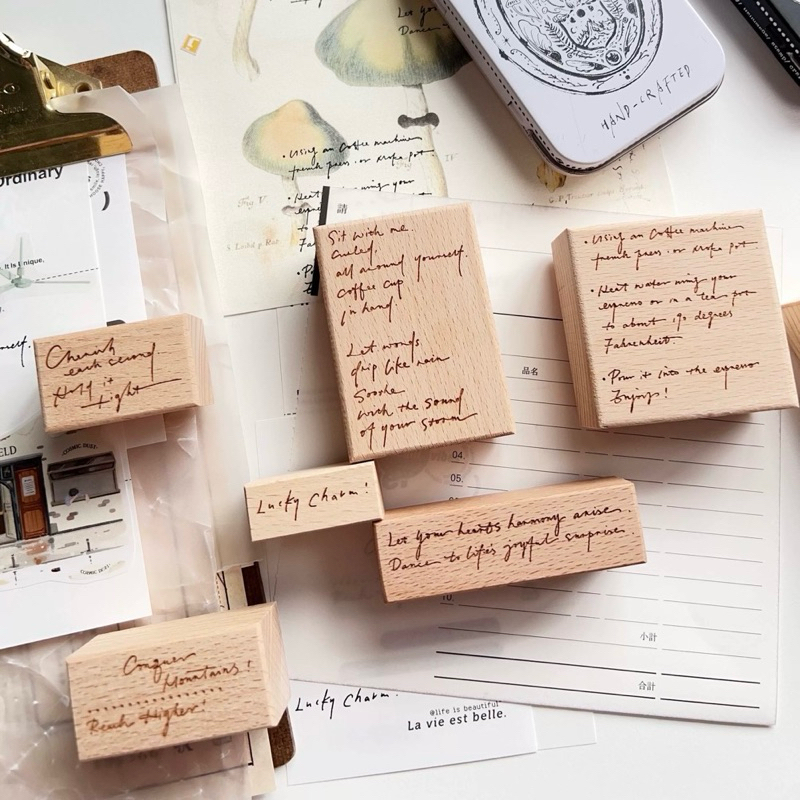 Let yo
Dance
HAND-CRAFTED
Ordinary
It is unique.
• Using an Coffee machine
french press. or Moka pot
• Heat
ming your
espre
to
Fa
• Po
En
Fig. V
IV
請
Sit with me.
Curled.
all around yourself.
coffee cup
in hand.
Let words
drip like rain
Soothe
with the sound
of your storm
• Using an Coffee machine
french press. or Moka pot
• Heat water ming your
espreno or in a tea pot
to about 190 degrees
Fahrenheit.
• Pour it into the espresso
Enjoys!
Cherish
each second.
Hold it
tight
品名
04.
05.
Lucky Charm!
Let your hearts harmony arise.
Dance to life's joyful surprise.
10
ELD
COSMIC DUST
COSMIC DUST
小計
合計
Conquer
Mountains!
Reach Higher!
Lucky Charm!
@life is beautiful
La vie est belle.